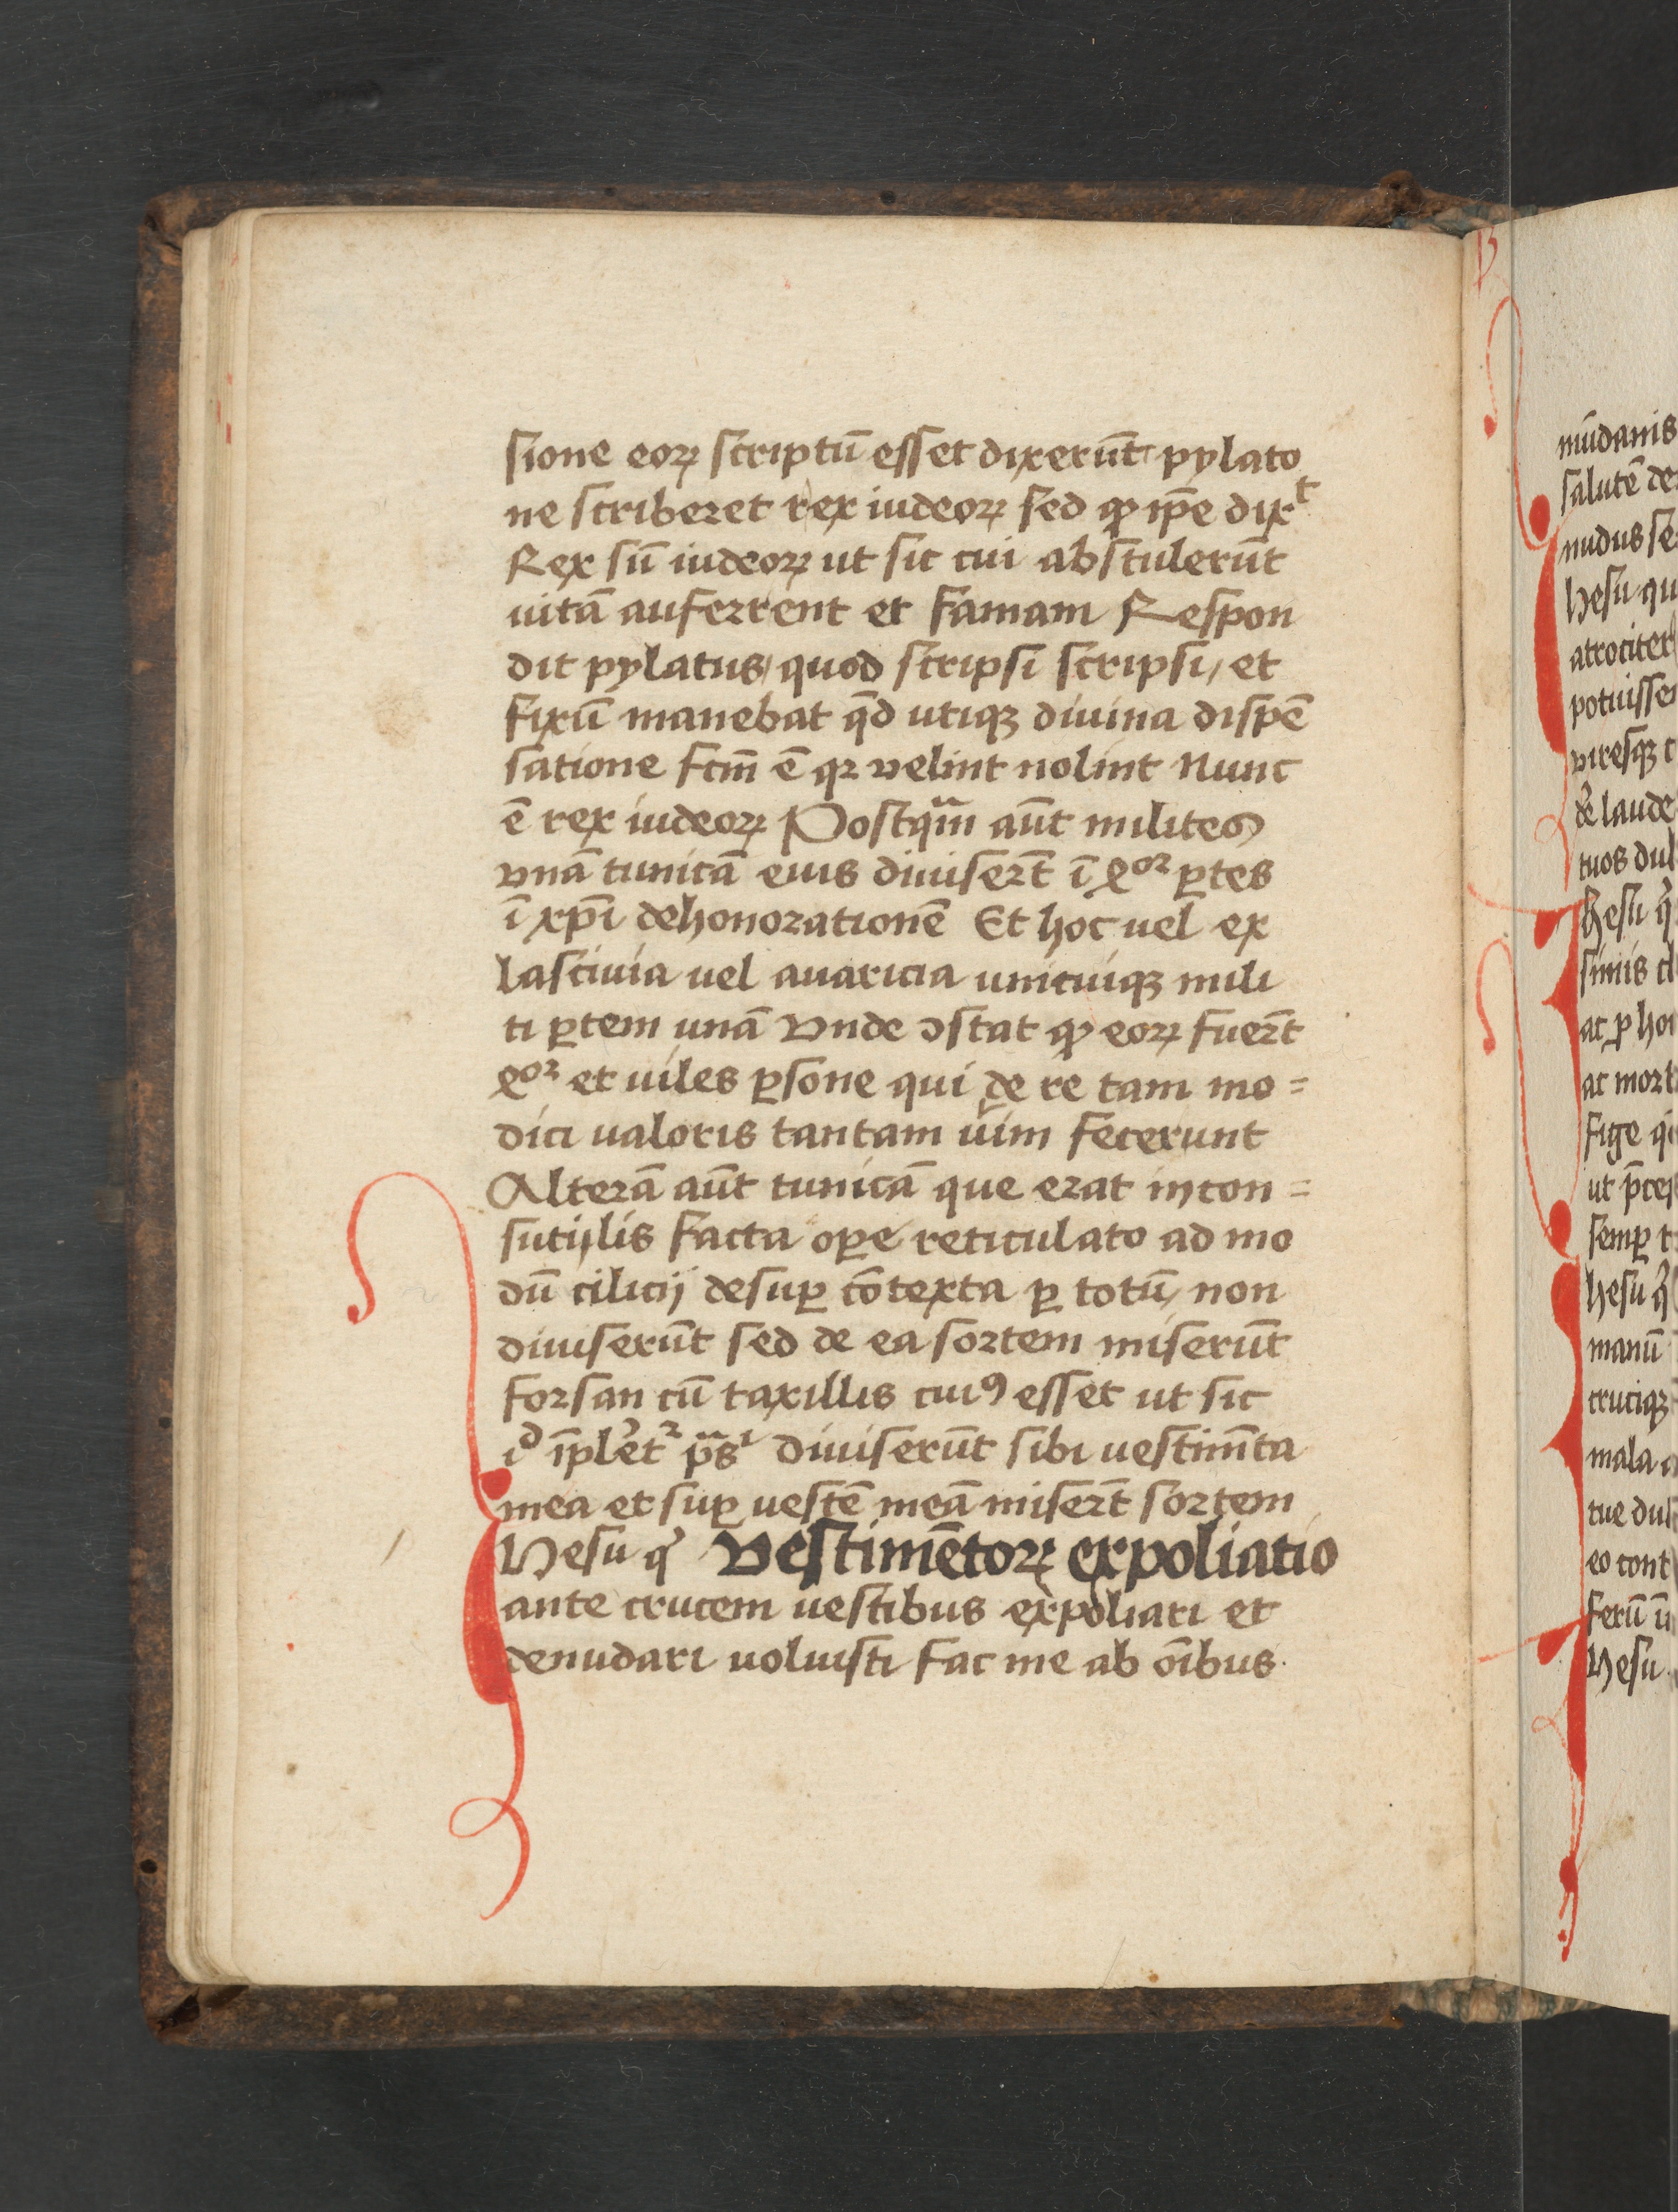 sione eoꝝ scriptū esset dixerūt pylato
ne scriberet rex iudeoꝝ sed ꝙ ip̄e dixᵗ
Rex sū iudeoꝝ ut sic cui abstulerūt
uitā auferrent et famam Respon
dit pylatus/ quod scripsi scripsi/ et
fixū manebat qd̄ utiqꝫ diuina dispē
satione fcm̄ ē qꝛ velint nolint Nunc
ē rex iudeoꝝ Postqᵃ̄m aūt milites
vnā tunicā eius diuiserūt ī qᵒʳ ꝑtes
ī xp̄i dehonorationē Et hoc uel ex
lasciuia uel auaricia unicuiqꝫ mili
ti ꝑtem unā Vnde ↄstat ꝙ eoꝝ fuerūt
qᵒʳ et uiles ꝑsone qui de re tam mo=
dici ualoris tantam uim fecerunt
Alterā aūt tunicā que erat incon=
sutilis facta oꝑe reticulato ad mo
dū cilicij desuꝑ cōtexta ꝑ totū/ non
diuiserūt sed de ea sortem miserūt
forsan cū taxillis cuiꝰ esset ut sic
īplet᷑ diuiserūt sibi uestimēta
mea et suꝑ uestē meā miserūt sortem
Ihesu qͥ Vestimētoꝝ expoliatio
ante crucem uestibus expoliari et
denudari uoluisti fac me ab oībus
mūdanis
salutē de
nudus se
Ihesu qu
atrociter
potuisse
viresqꝫ
laude
tuos dul
Ihesu qͥ
simis cl
ac ꝓ ho
ac mort
fige qi
ut
semꝑ t
Ihesu qͥ
manū
cruciqꝫ
mala
tue dul
eo cont
ferū
Ihesu